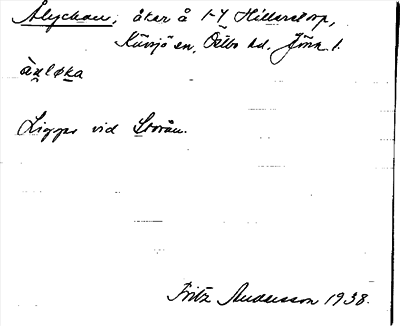 Ålyckan, åker å 1-4 Hillerstorp,
Kävsjö sn, Östbo hd, Jönk. l.
Ligger vid Storån.
Fritz Andersson 1938.